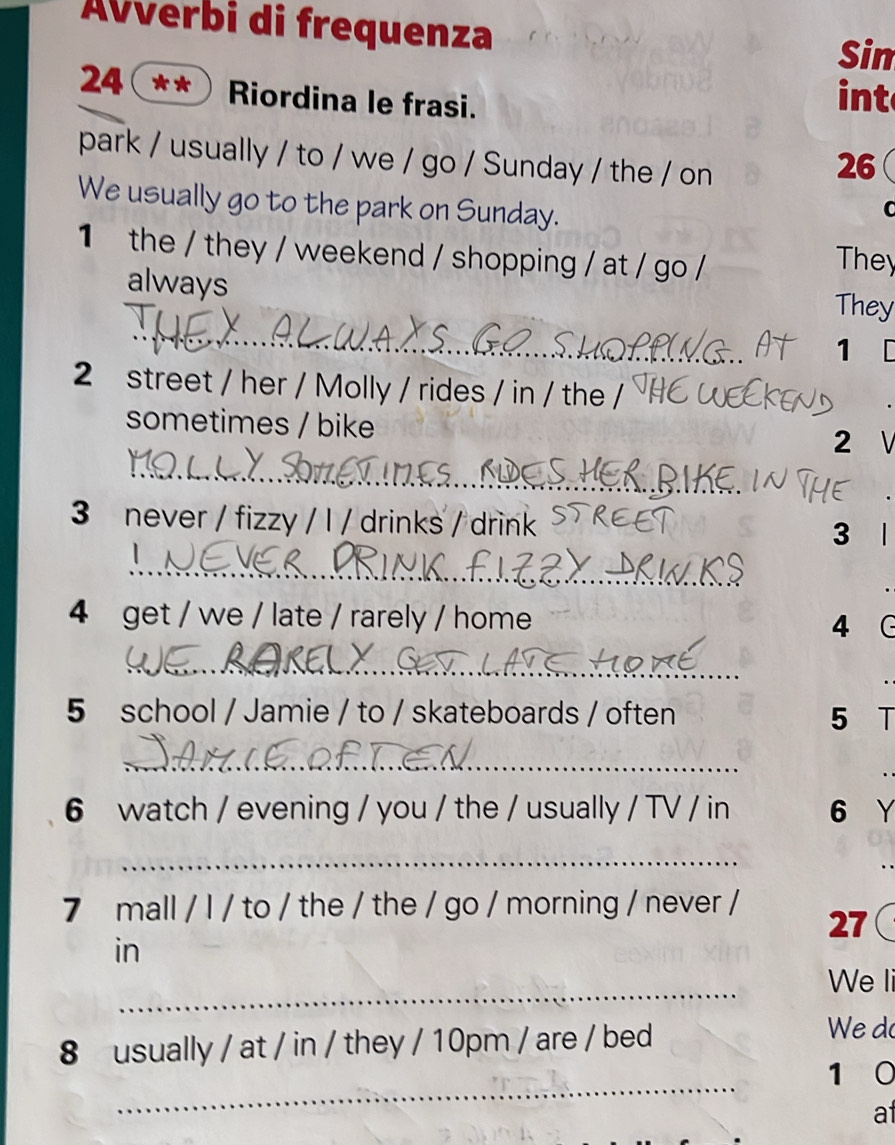 Avverbi di frequenza
24 ** Riordina le frasi.
park / usually / to / we / go / Sunday / the / on
We usually go to the park on Sunday.
1 the / they / weekend / shopping / at / go /
always
THEY ALWAYS GO SHOPPING AT
THE WEEKEND
2 street / her / Molly / rides / in / the /
sometimes / bike
MOLLY SOMETIMES RIDES HER BIKE IN THE
STREET
3 never / fizzy / I / drinks / drink
I NEVER DRINK FIZZY DRINKS
4 get / we / late / rarely / home
WE RARELY GET LATE HOME
5 school / Jamie / to / skateboards / often
JAMIE OFTEN
6 watch / evening / you / the / usually / TV / in
7 mall / I / to / the / the / go / morning / never /
in
8 usually / at / in / they / 10pm / are / bed
Sim
int
26
They
They
1
2
3 I
4
5 T
6 Y
27
We li
We do
1 O
at